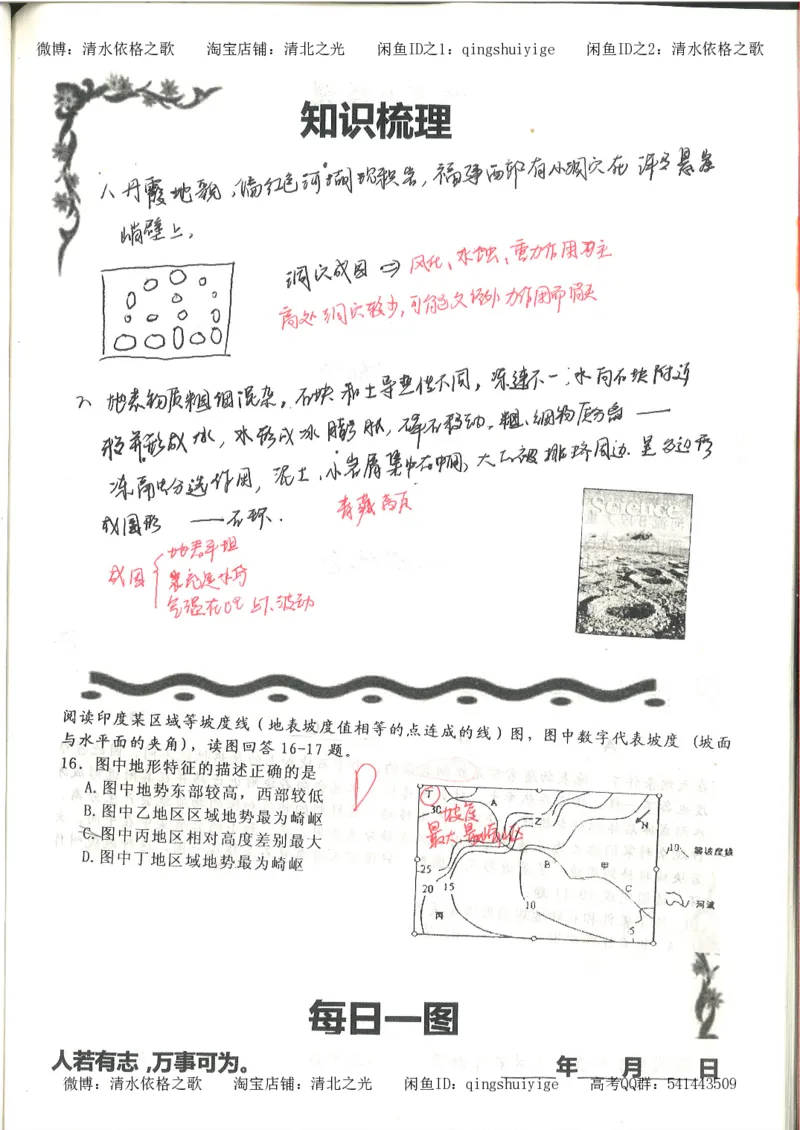 微博：清水依格之歌 淘宝店铺：清北之光 闲鱼ID之1：qingshuiyige 闲鱼ID之2：清水依格之歌
知识梳理
1、丹霞地貌，属红色河湖沉积岩，福建西部有小洞穴在许多悬崖
峭壁上。
洞穴成因 ⇒ 风化、水蚀、重力作用为主
高处洞穴较少，可能受外力作用而崩
2、地表物质粗细混杂，石块和土导热性不同，冻速不一；水向石块附近
形成冰，水形成冰膨胀，碎石移动。粗、细物质分离 ——
冻融分选作用，泥土、小岩屑集中在中间，大石被排挤周边，呈多边形
或圆形 —— 石环.
青藏高原
成因
地表平坦
气温在0℃上下波动
Science
阅读印度某区域等坡度线（地表坡度值相等的点连成的线）图，图中数字代表坡度（坡面
与水平面的夹角），读图回答 16-17 题。
16. 图中地形特征的描述正确的是
D
A. 图中地势东部较高，西部较低
B. 图中乙地区区域地势最为崎岖
C. 图中丙地区相对高度差别最大
D. 图中丁地区域地势最为崎岖
丁
30
A
坡度
最大最崎岖
乙
N
10 等坡度线
25
B
甲
20 15
C
河流
丙
10
5
每日一图
人若有志，万事可为。
年 月 日
微博：清水依格之歌 淘宝店铺：清北之光 闲鱼ID：qingshuiyige 高考QQ群：541443509